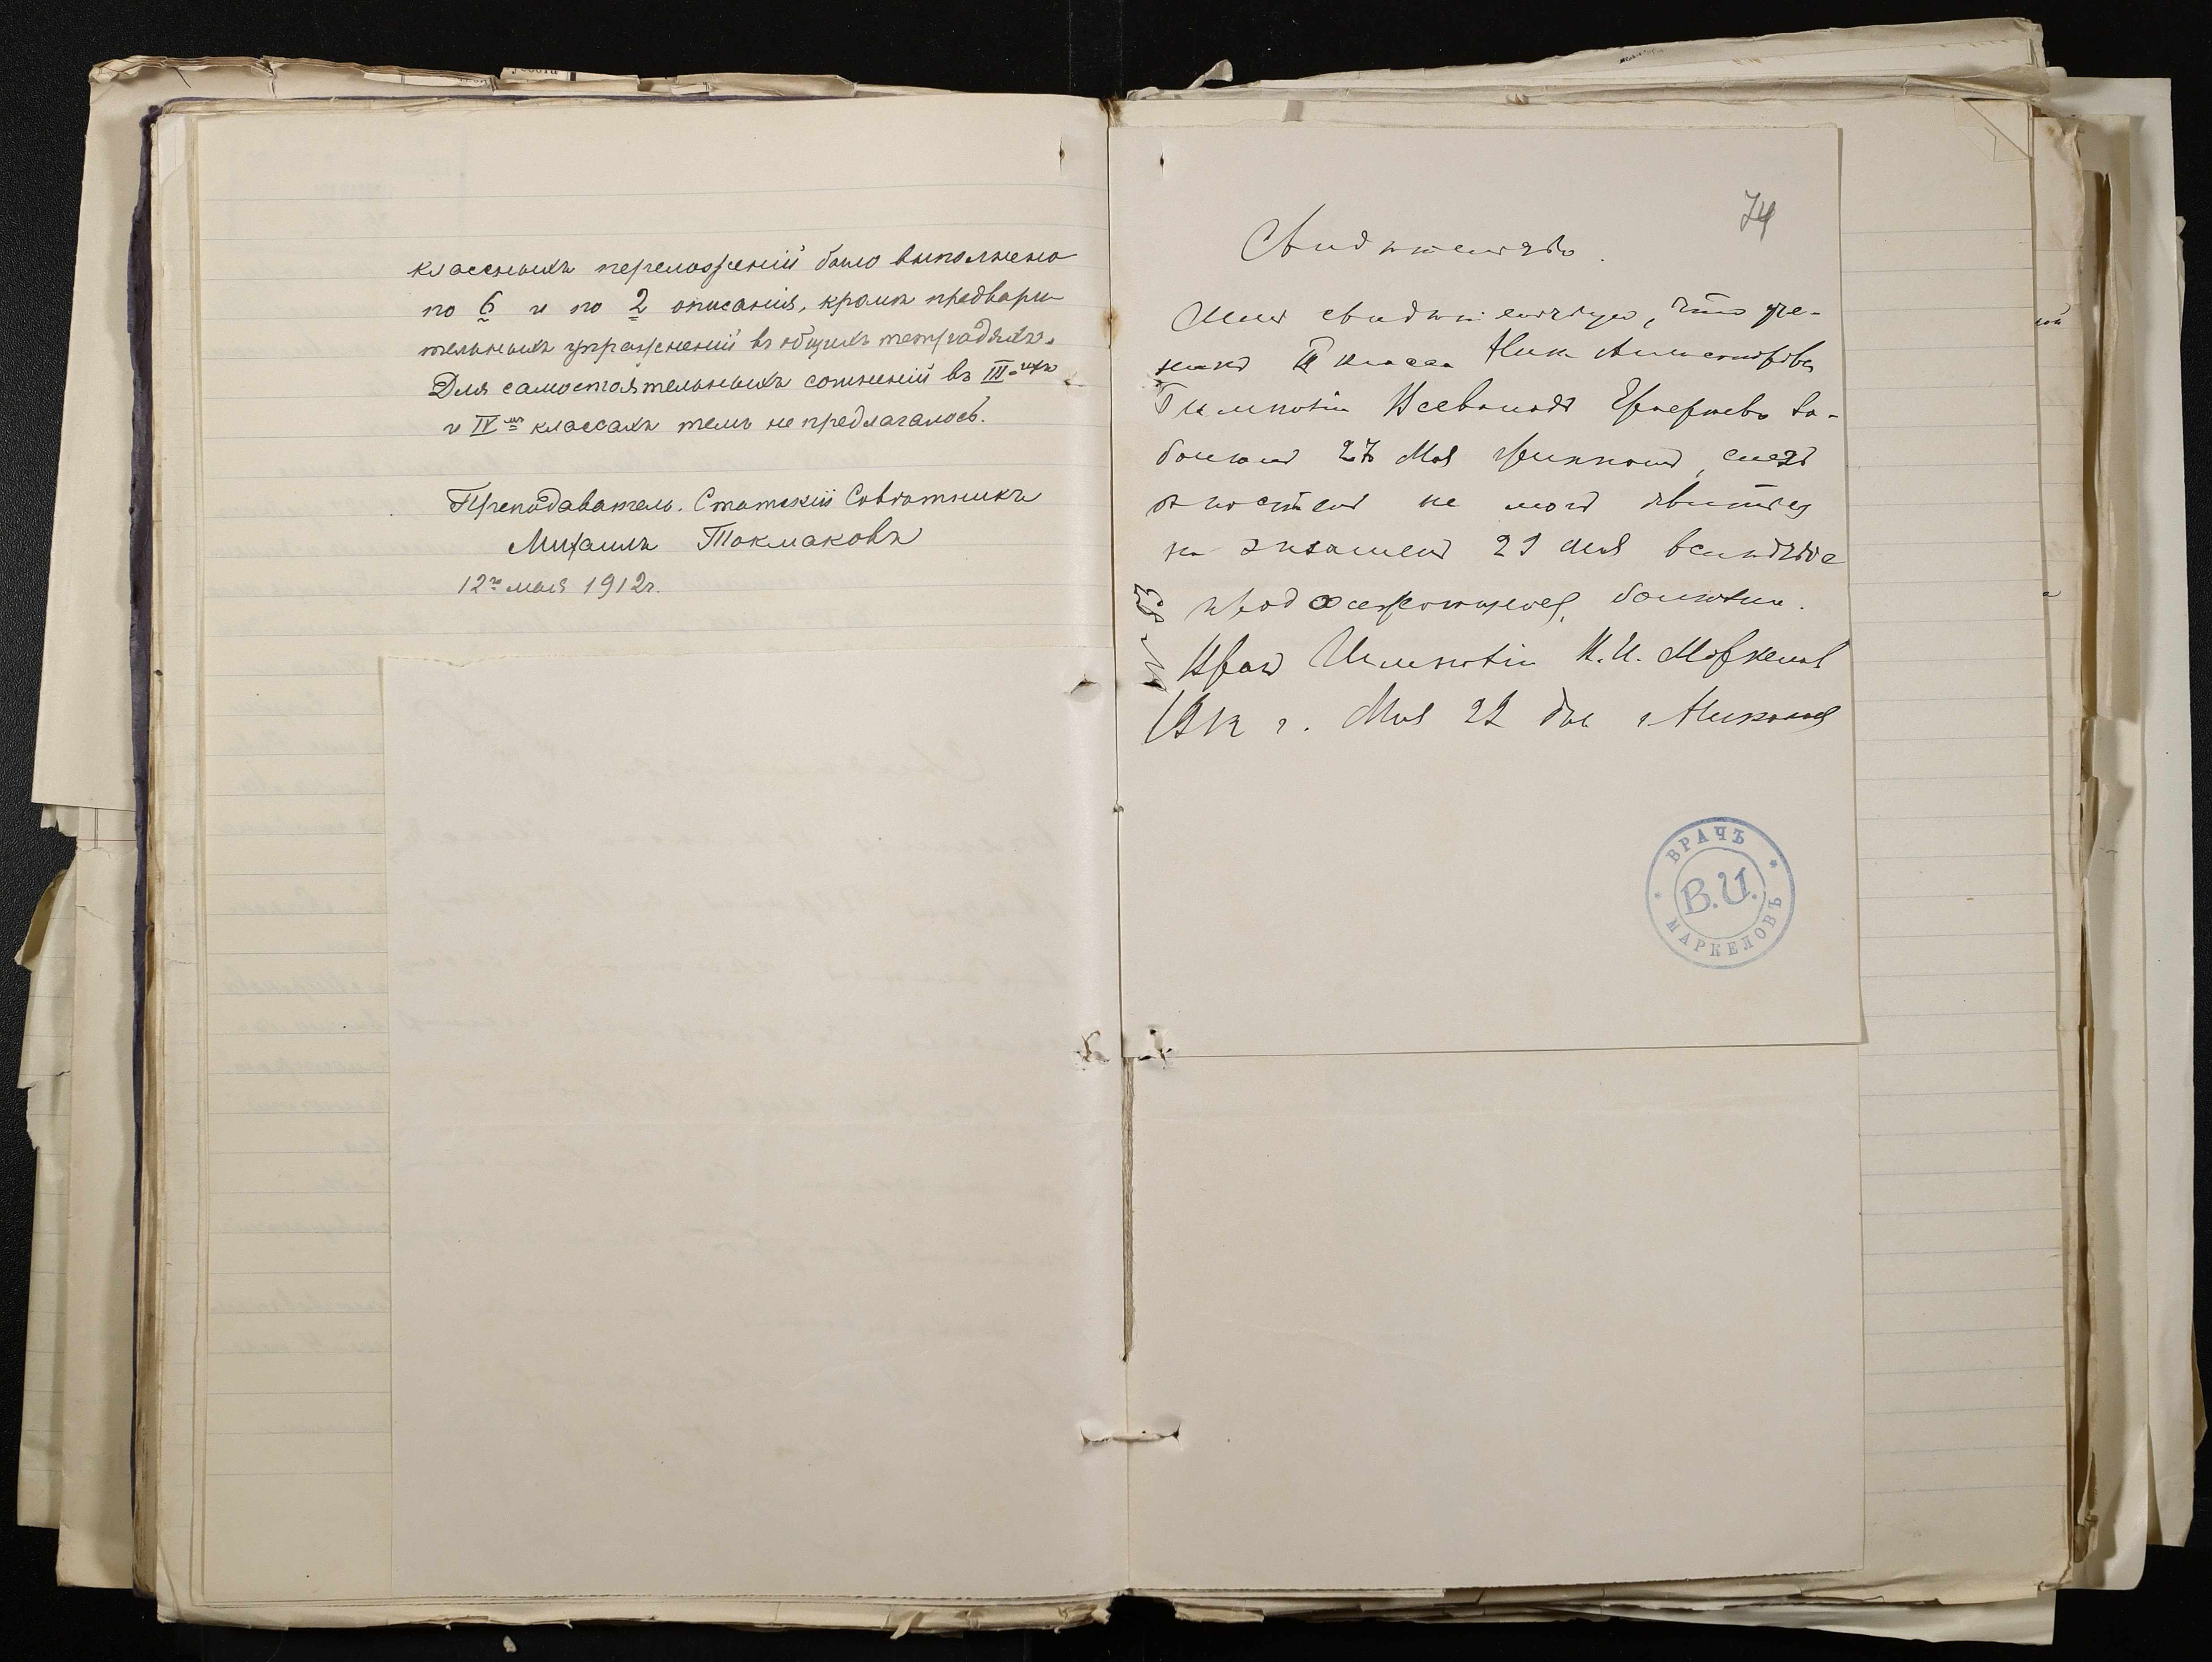 классныхъ переложеній было выполнено
по 6 и по 2 описанія, кромѣ предвари-
тельныхъ упражненій въ общихъ тетрадяхъ.
Для самостоятельныхъ сочиненій въ III-ихъ
и IV-мъ классахъ темъ не предлагалось.
Преподаватель, Статскій Совѣтникъ
Михаилъ Токмаковъ
12го мая 1912 г.
74
Свидѣтельство.
Симъ свидѣтельствую, что уче-
никъ III класса Ник. Александровск.
Гимназіи Всеволодъ за-
болѣлъ 27 Мая
не могъ явиться
на экзаменъ 29 Мая вслѣдствіе
болѣзни.
Врач Гимназіи В. И. Маркелов
1912 г. Мая 29 дня г. Николаев
ВРАЧЪ
В.И.
МАРКЕЛОВЪ